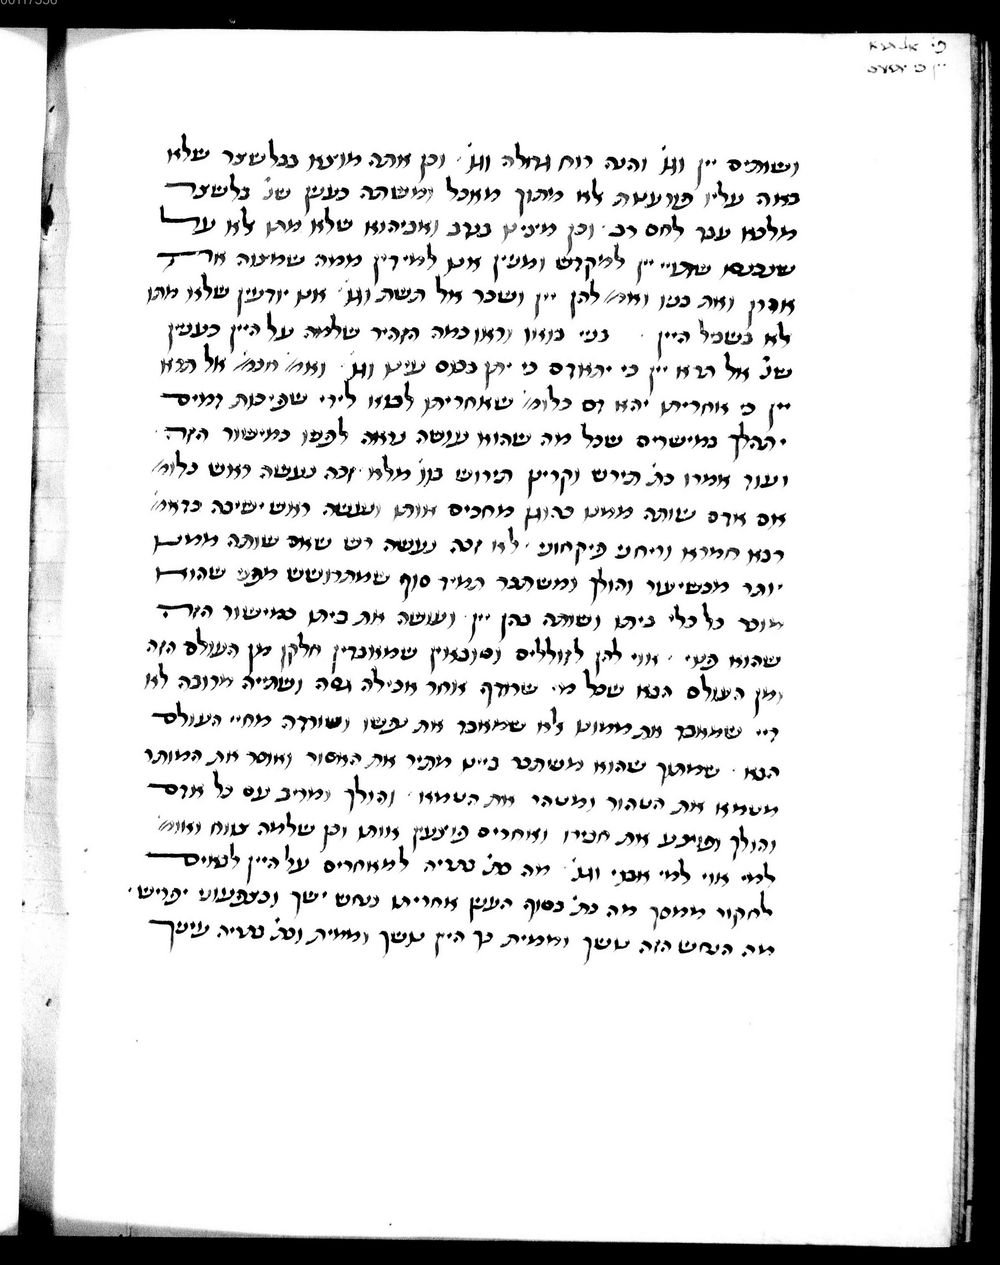 פי' אל תרא
יין כי יתאדם
ושותים יין וגו' והנה רוח גדולה וגו' וכן אתה מוצא בבלשצר שלא
באה עליו פורענות אלא מתוך מאכל ומשתה כענין שנ' בלשצר
מלכא עבד לחם רב וכן מצינו בנדב ואביהוא שלא מתו אלא על
שנכנסו שתויי יין למקדש ומנין אנו למידין ממה שמצוה את
אהרן ואת בניו ואמ' להן יין ושכר אל תשת וגו' אנו יודעין שלא מתו
אלא בשביל היין בני בואו וראו כמה הזהיר שלמה על היין כענין
שנ' אל תרא יין כי יתאדם כי יתן בכוס עינו וגו' ואמ' חכמ' אל תרא
יין כי אחריתו יהא דם כלומ' שאחריתו לבוא לידי שפיכות דמים
יתהלך במישרים שכל מה שהוא עושה נראה לפניו כמישור הזה
ועוד אמרו כת' תירש וקרינן תירוש מלא זכה נעשה ראש כלומ'
אם אדם שותה ממנו כהוגן מחכים אותו ונעשה ראש ישיבה כדאמ'
רבא חמרא וריחני פיקחוני לא זכה נעשה רש שאם שותה ממנו
יותר מכשיעור והולך ומשתכר תמיד סוף שמתרושש מפני שהוא
מוכר כל כלי ביתו ושותה בהן יין ועושה את ביתו כמישור הזה
שהוא פנוי אוי להן לזוללים וסובאין שמאבדין חלקן מן העולם הזה
ומן העולם הבא שכל מי שרודף אחר אכילה גסה ושתייה מרובה לא
דיי שמאבד את ממונו אלא שמאבד את נפשו ושורדה מחיי העולם
הבא שמתוך שהוא משתכר ביינו מתיר את האסור ואוסר את המותר
מטמא את הטהור ומטהר את הטמא והולך ומריב עם כל אדם
והולך ופוצע את חבירו ואחרים פוצעין אותו וכן שלמה צווח ואומ'
למי אוי למי אבוי וגו' מה כת' בתריה למאחרים על היין לבאים
לחקור ממסך מה כת' בסוף הענין אחריתו כנחש ישך וכצפעוני יפריש
מה הנחש הזה נושך וממית כך היין נושך וממית וכת' בתריה עיניך